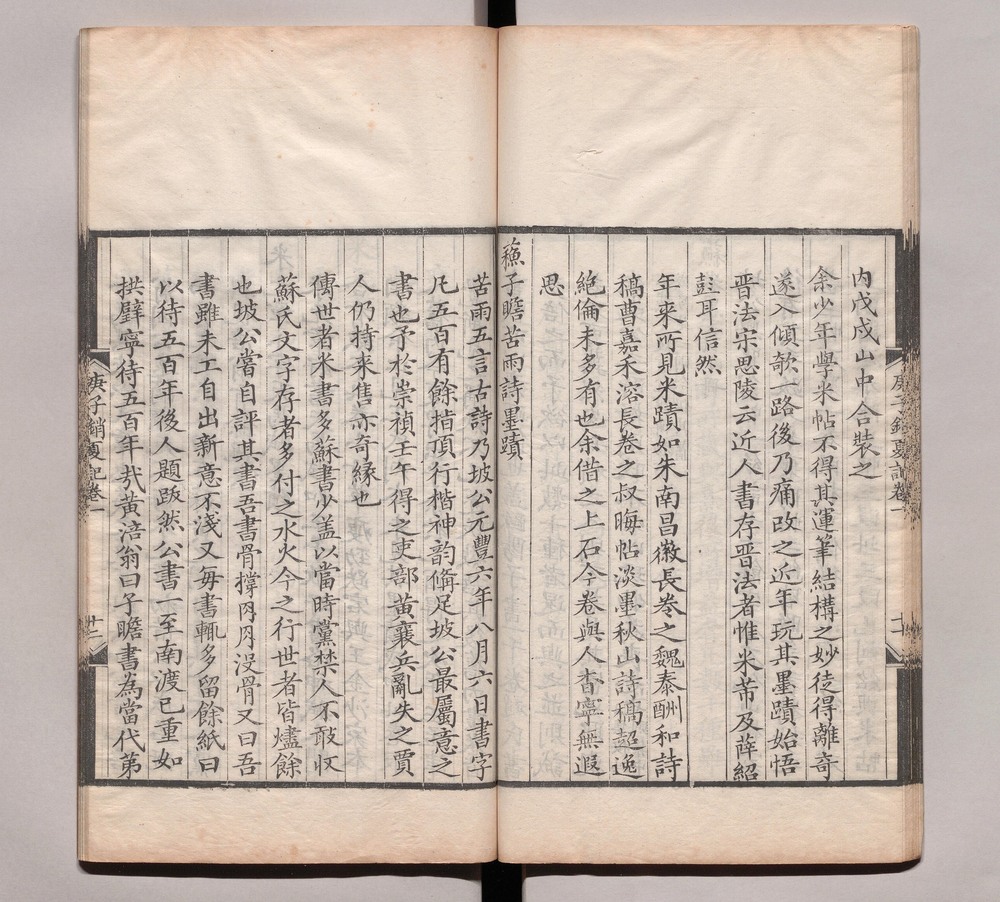 内戊戌山中合裝之
余少年學米帖不得其運筆結構之妙徒得離奇
遂入傾欹一路後乃痛改之近年玩其墨蹟始悟
晉法宋思陵云近人書存晉法者惟米芾及薛紹
彭耳信然
年來所見米蹟如朱南昌徽長卷之魏泰酬和詩
稿曹嘉禾溶長卷之叔晦帖淡墨秋山詩稿超逸
絶倫未多有也余借之上石今卷與人杳寧無遐
思
蘓子瞻苦雨詩墨蹟
苦雨五言古詩乃坡公元豐六年八月六日書字
凡五百有餘指頂行楷神韵偹足坡公最屬意之
書也予於崇禎壬午得之吏部黃襄兵亂失之賈
人仍持来售亦奇縁也
傳世者米書多蘇書少盖以當時黨禁人不敢収
蘇氏文字存者多付之水火今之行世者皆燼餘
也坡公嘗自評其書吾書骨撐肉肉没骨又曰吾
書雖未工自出新意不淺又毎書輒多留餘紙曰
以待五百年後人題跋然公書一至南渡已重如
拱璧寧待五百年㢤黃涪翁曰子瞻書為當代第
庚子銷夏記卷一
十二